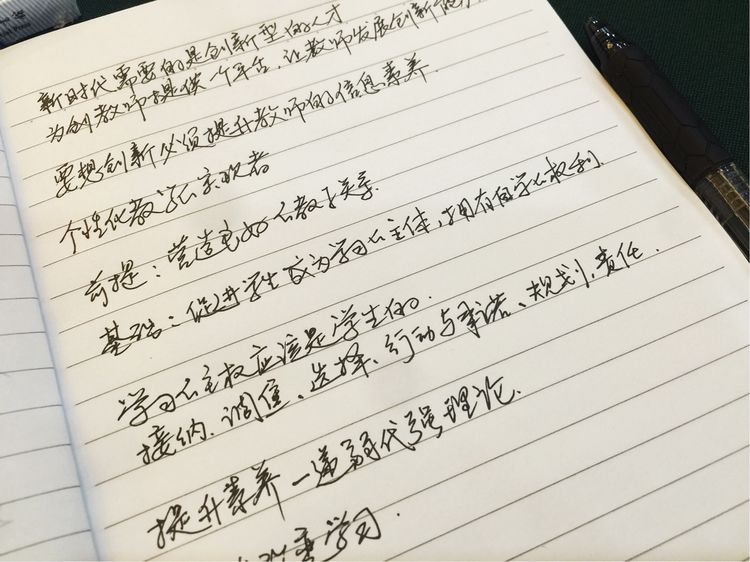 新时代需要的是创新型的人才
为创教师提供一个平台,让教师发展创新能力
要想创新必须提升教师的信息素养.
个性化教学的实现者
前提:营造良好的教学关系.
基础:促进学生成为学习的主体,拥有自学的权利.
学习的主权应该是学生的.
接纳、调焦、选择、行动与承诺、规划、责任.
提升素养—递弱代强理论.
学习.